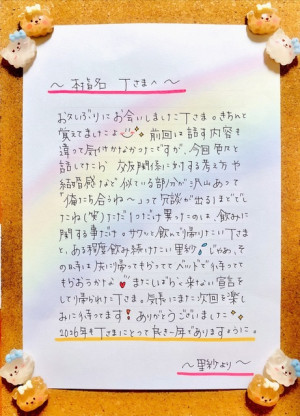 ～本指名 Tさまへ～
お久しぶりにお会いしましたTさま。きちんと
覚えてましたよ 前回は話す内容も
違って気付かなかったですが、今回色々と
話してたら 交友関係に対する考え方や
結婚感など似ている部分が沢山あって
『俺たち合うね〜』って冗談が出るまででし
たね(笑)ただ1つだけ異ったのは、飲みに
関する事だけ。サクッと飲んで帰りたいTさま
と、ある程度飲み続けたい里紗 じゃあ、そ
の時は先に帰ってもらってベッドで待ってて
もらおうかな またしばらく来ない宣言を
して帰られたTさま。気長にまた次回を楽し
みに待ってます ありがとうございました
2026年もTさまにとって良き一年でありますように。
～里紗より～